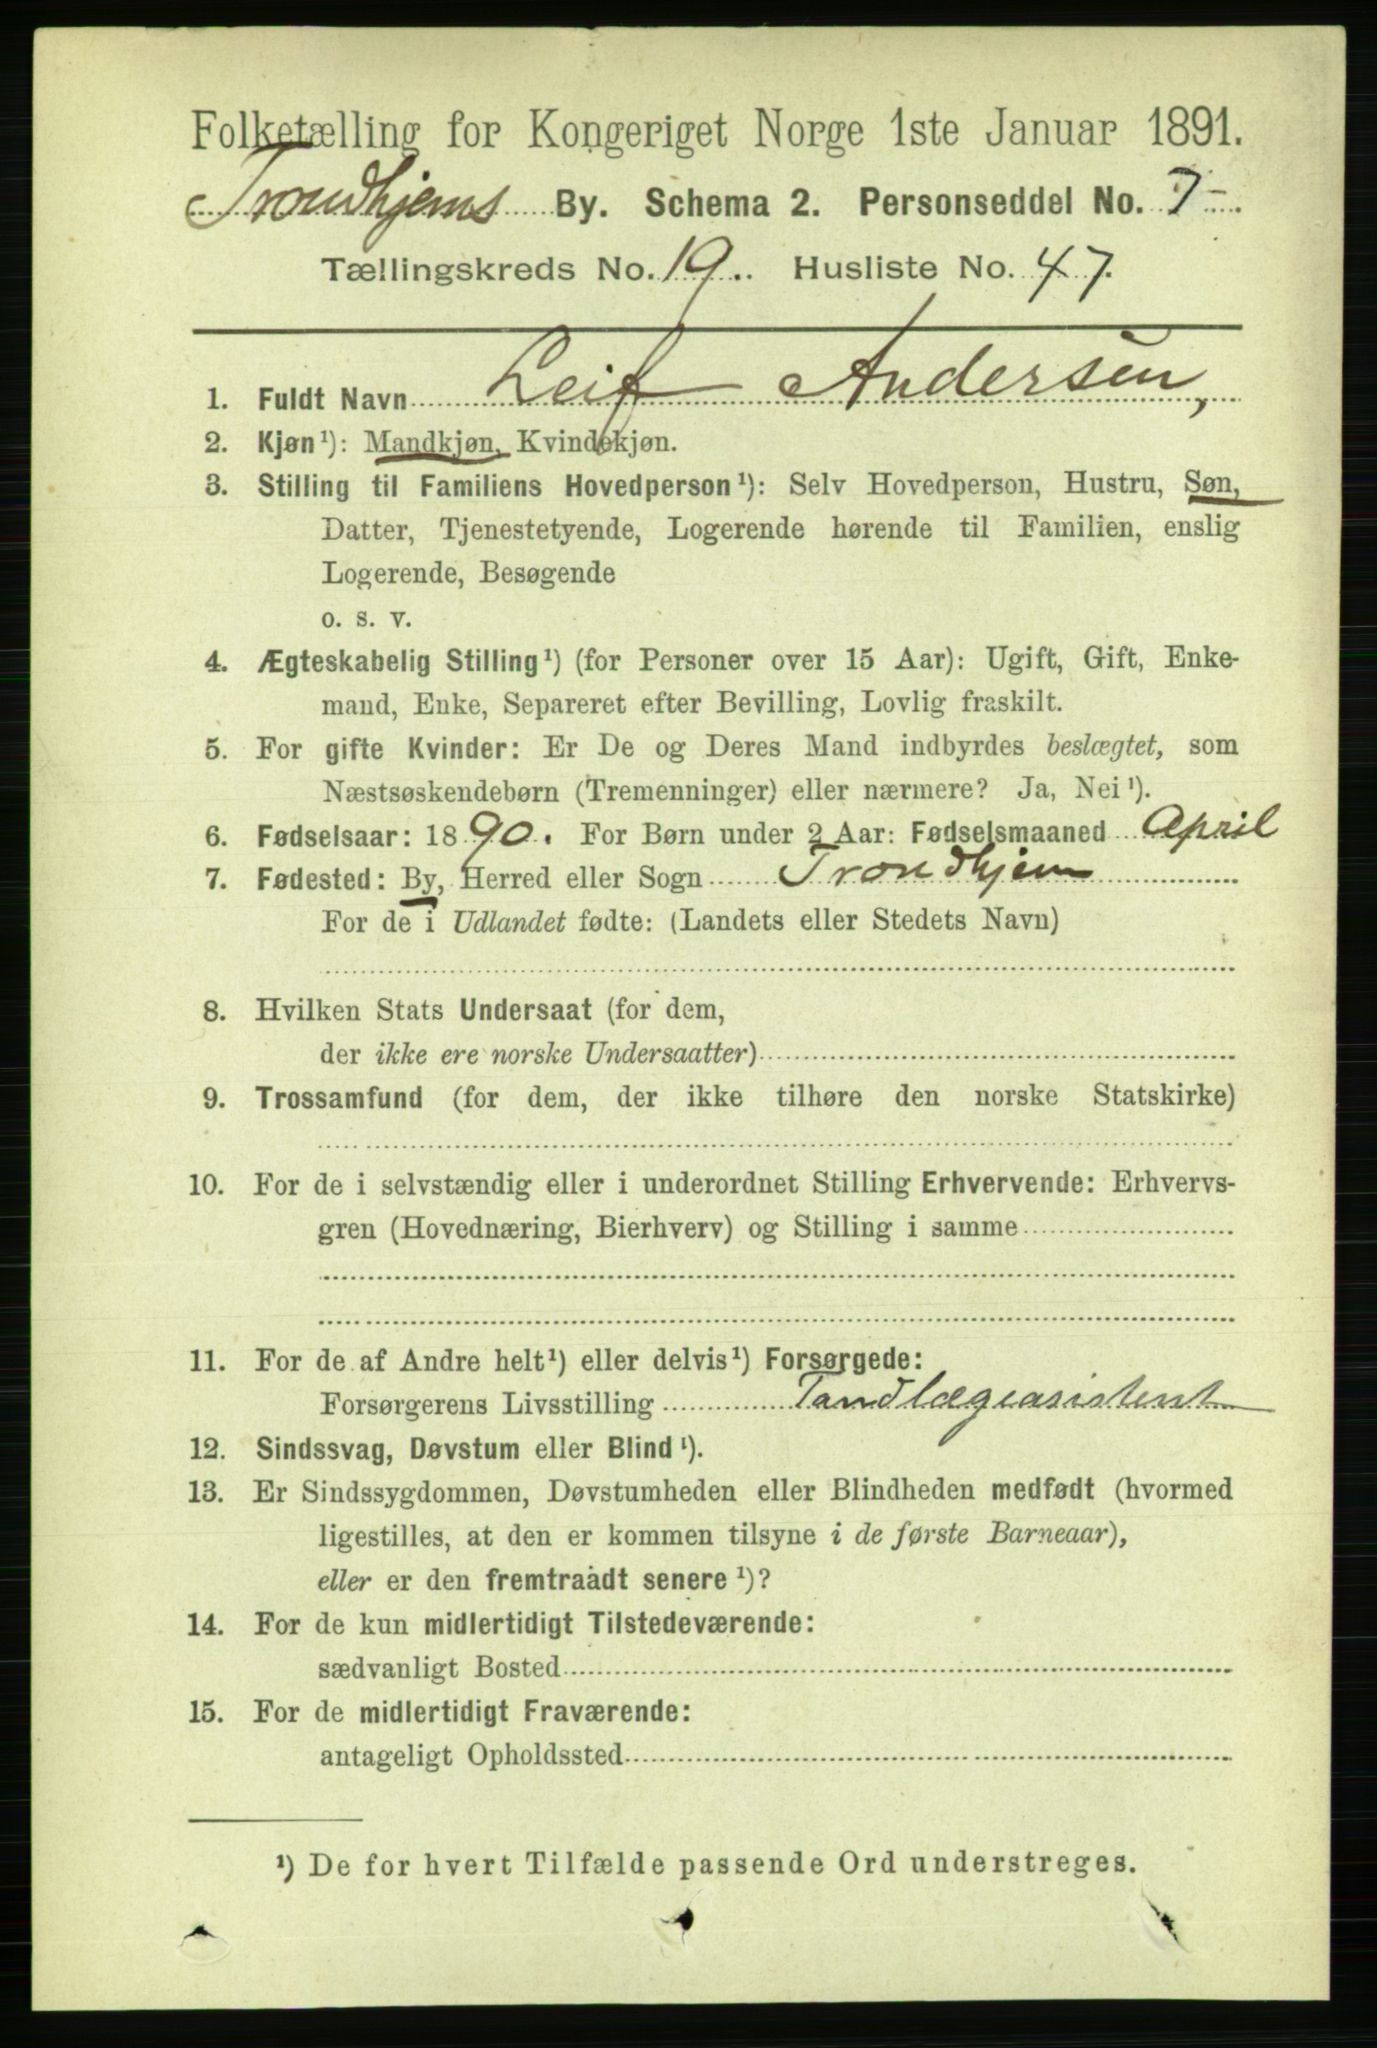 Folketælling for Kongeriget Norge 1ste Januar 1891.
Trondhjems By. Schema 2. Personseddel No. 7
Tællingskreds No. 19. Husliste No. 47.
1. Fuldt Navn Leif Andersen,
2. Kjøn¹): Mandkjøn, Kvindekjøn.
3. Stilling til Familiens Hovedperson¹): Selv Hovedperson, Hustru, Søn,
Datter, Tjenestetyende, Logerende hørende til Familien, enslig
Logerende, Besøgende
o. s. v.
4. Ægteskabelig Stilling¹) (for Personer over 15 Aar): Ugift, Gift, Enke-
mand, Enke, Separeret efter Bevilling, Lovlig fraskilt.
5. For gifte Kvinder: Er De og Deres Mand indbyrdes beslægtet, som
Næstsøskendebørn (Tremenninger) eller nærmere? Ja, Nei¹).
6. Fødselsaar: 1890. For Børn under 2 Aar: Fødselsmaaned April
7. Fødested: By, Herred eller Sogn Trondhjem
For de i Udlandet fødte: (Landets eller Stedets Navn)
8. Hvilken Stats Undersaat (for dem,
der ikke ere norske Undersaatter)
9. Trossamfund (for dem, der ikke tilhøre den norske Statskirke)
10. For de i selvstændig eller i underordnet Stilling Erhvervende: Erhvervs-
gren (Hovednæring, Bierhverv) og Stilling i samme
11. For de af Andre helt¹) eller delvis¹) Forsørgede:
Forsørgerens Livsstilling Tandlægeasistent
12. Sindssvag, Døvstum eller Blind¹).
13. Er Sindssygdommen, Døvstumheden eller Blindheden medfødt (hvormed
ligestilles, at den er kommen tilsyne i de første Barneaar),
eller er den fremtraadt senere¹)?
14. For de kun midlertidigt Tilstedeværende:
sædvanligt Bosted
15. For de midlertidigt Fraværende:
antageligt Opholdssted
¹) De for hvert Tilfælde passende Ord understreges.